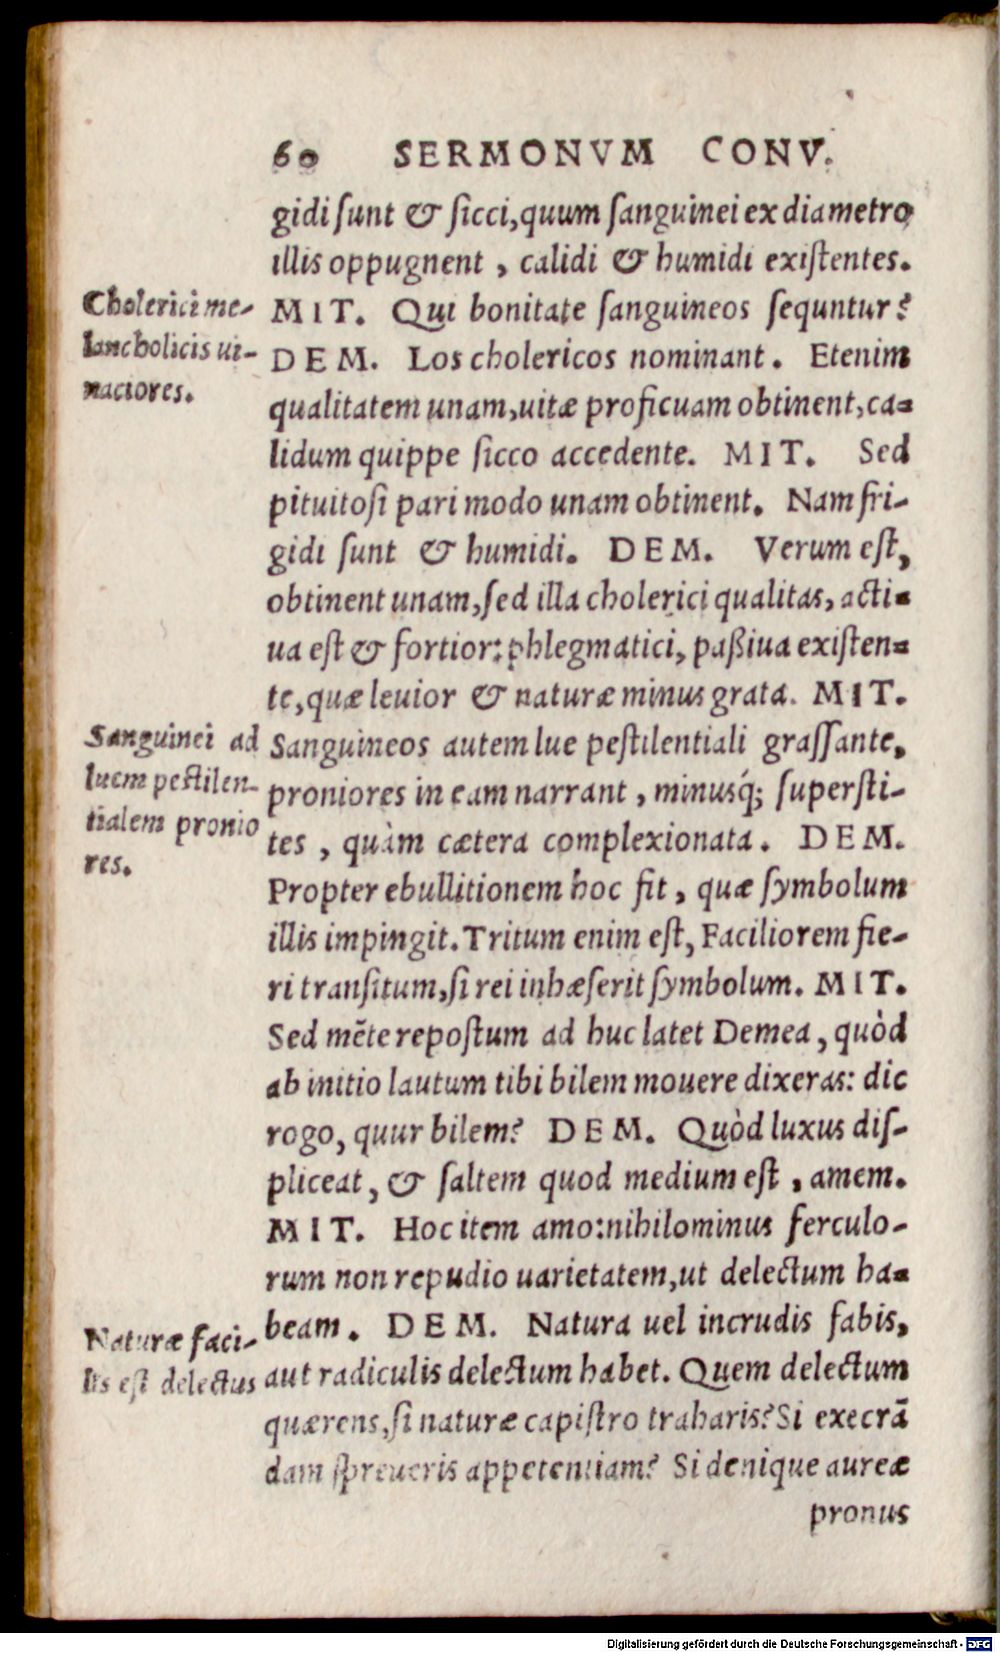 60 SERMONVM CONV.
gidi ſunt & ſicci, quum ſanguinei ex diametro
illis oppugnent, calidi & humidi exiſtentes.
MIT. Qui bonitate ſanguineos ſequntur?
DEM. Los cholericos nominant. Etenim
qualitatem unam, uitæ proficuam obtinent, ca-
lidum quippe ſicco accedente. MIT. Sed
pituitoſi pari modo unam obtinent. Nam fri-
gidi ſunt & humidi. DEM. Verum eſt,
obtinent unam, ſed illa cholerici qualitas, acti-
ua eſt & fortior: phlegmatici, paßiua exiſten-
te, quæ leuior & naturæ minus grata. MIT.
Sanguineos autem lue peſtilentiali graſſante,
proniores in eam narrant, minusq́; ſuperſti-
tes, quàm cætera complexionata. DEM.
Propter ebullitionem hoc fit, quæ ſymbolum
illis impingit. Tritum enim eſt, Faciliorem fie-
ri tranſitum, ſi rei inhæſerit ſymbolum. MIT.
Sed mẽte repoſtum ad huc latet Demea, quòd
ab initio lautum tibi bilem mouere dixeras: dic
rogo, quur bilem? DEM. Quòd luxus diſ-
pliceat, & ſaltem quod medium eſt, amem.
MIT. Hoc item amo: nihilominus ferculo-
rum non repudio uarietatem, ut delectum ha-
beam. DEM. Natura uel incrudis fabis,
aut radiculis delectum habet. Quem delectum
quærens, ſi naturæ capiſtro traharis? Si execrã
dam ſpreueris appetentiam? Si denique aureæ
pronus
Cholerici me-
lancholicis ui-
naciores.
Sanguinei ad
luem peſtilen-
tialem pronio
res.
Naturæ faci-
lis eſt delectus
Digitalisierung gefördert durch die Deutsche Forschungsgemeinschaft - DFG